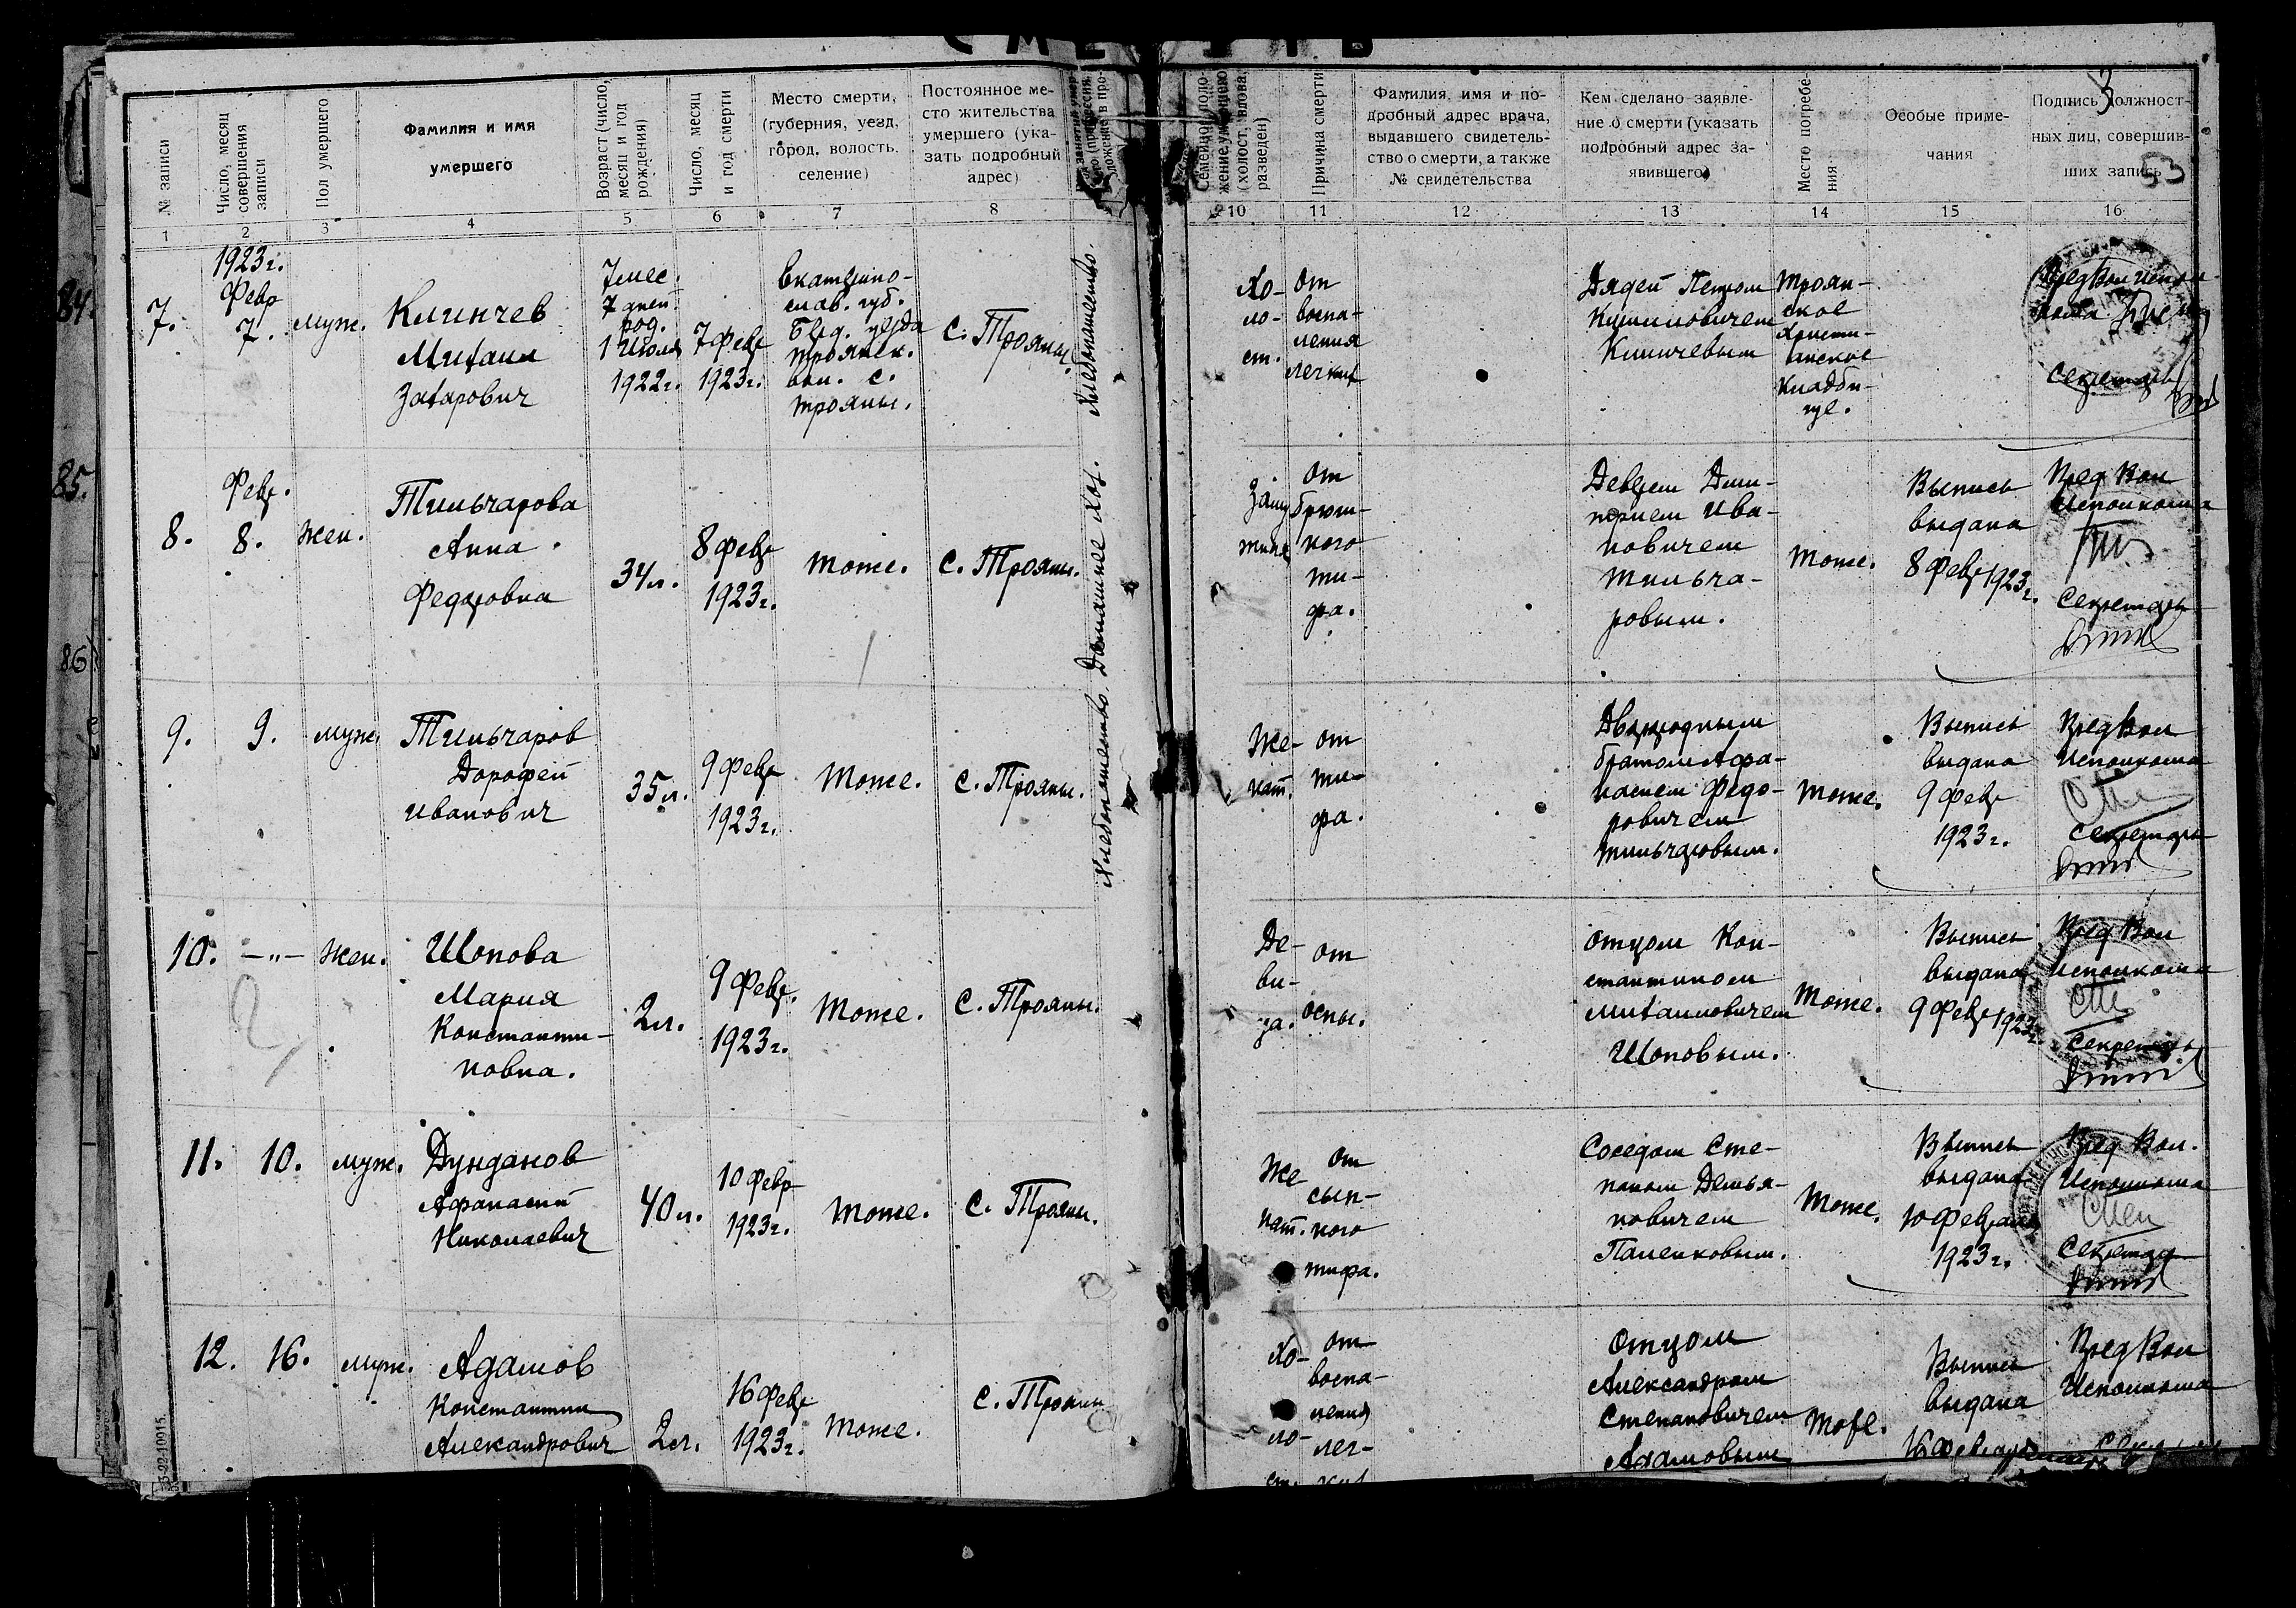 СМЕРТЬ
3
53
№ записи
Число, месяц совершения записи
Пол умершего
Фамилия и имя
умершего
Возраст (число, месяц и год рождения)
Число, месяц и год смерти
Место смерти,
(губерния, уезд,
город, волость,
селение)
Постоянное ме-
сто жительства
умершего (ука-
зать подробный
адрес)
Семейное поло-
жение умершего
(холост, вдова,
разведен)
Причина смерти
Фамилия, имя и по-
дробный адрес врача,
выдавшего свидетель-
ство о смерти, а также
№ свидетельства
Кем сделано заявле-
ние о смерти (указать
подробный адрес за-
явившего)
Место погребе-
ния
Особые приме-
чания
Подпись должност-
ных лиц, совершив-
ших запись
1 2 3 4 5 6 7 8 10 11 12 13 14 15 16
84.
7.
1923г.
Февр
7.
муж.
Клинчев
Михаил
Захарович
7 мес.
7 дней.
род.
1 Июля
1922г.
7 Февр
1923г.
Екатерино-
слав. губ.
Берд. уезда
Троянск.
вол. с.
Трояны.
с. Трояны.
Хлебопашество.
Хо-
ло-
ст.
от
воспа-
ления
легких
Дядей Петром
Клинчевым
Троян-
ское
христи-
анское
кладби-
ще.
секретарь
85.
8.
Февр.
8.
жен.
Тильчарова
Анна
Федоровна
34л.
8 Февр
1923г.
тоже.
с. Трояны.
Домашнее хоз.
от
брюш-
ного
ти-
фа.
Деврем Дми-
трием Ива-
новичем
Тильча-
ровым.
тоже.
Выпись
выдана
8 Февр 1923г.
Пред Вол
Исполкома
Секретарь
86
9.
9.
муж.
Тильчаров
Дорофей
Иванович
35л.
9 Февр
1923г.
тоже.
с. Трояны.
Хлебопашество.
Же-
нат.
от
ти-
фа.
Двоюродным
братом Афа-
насием Федо-
ровичем
Тильчаровым.
тоже.
Выпись
выдана
9 Февр
1923г.
Пред Вол
Исполкома
Секретарь
10.
—„—
жен.
Шопова
Мария
Константи-
новна.
2л.
9 Февр.
1923г.
тоже.
с. Трояны.
Де-
ви-
ца.
от
оспы.
отцом Кон-
стантином
Михайловичем
Шоповым.
тоже.
Выпись
выдана
9 Февр 1923г.
Пред Вол
Исполкома
Секретарь
11.
10.
муж.
Дунданов
Афанасий
Николаевич
40л.
10 Февр
1923г.
тоже.
с. Трояны.
Же-
нат.
от
сып-
ного
тифа.
Соседом Сте-
паном Демья-
новичем
Паленковым.
тоже.
Выпись
выдана
10 Февраля
1923г.
Пред Вол.
Исполкома
Секретарь
12.
16.
муж.
Адамов
Константин
Александрович
2л.
16 Февр
1923г.
тоже.
с. Трояны
Хо-
ло-
ст.
от
воспа-
ления
лег-
ких
отцом
Александром
Степановичем
Адамовым
тоже.
Выпись
выдана
16 Февраля
Пред Вол
Исполкома